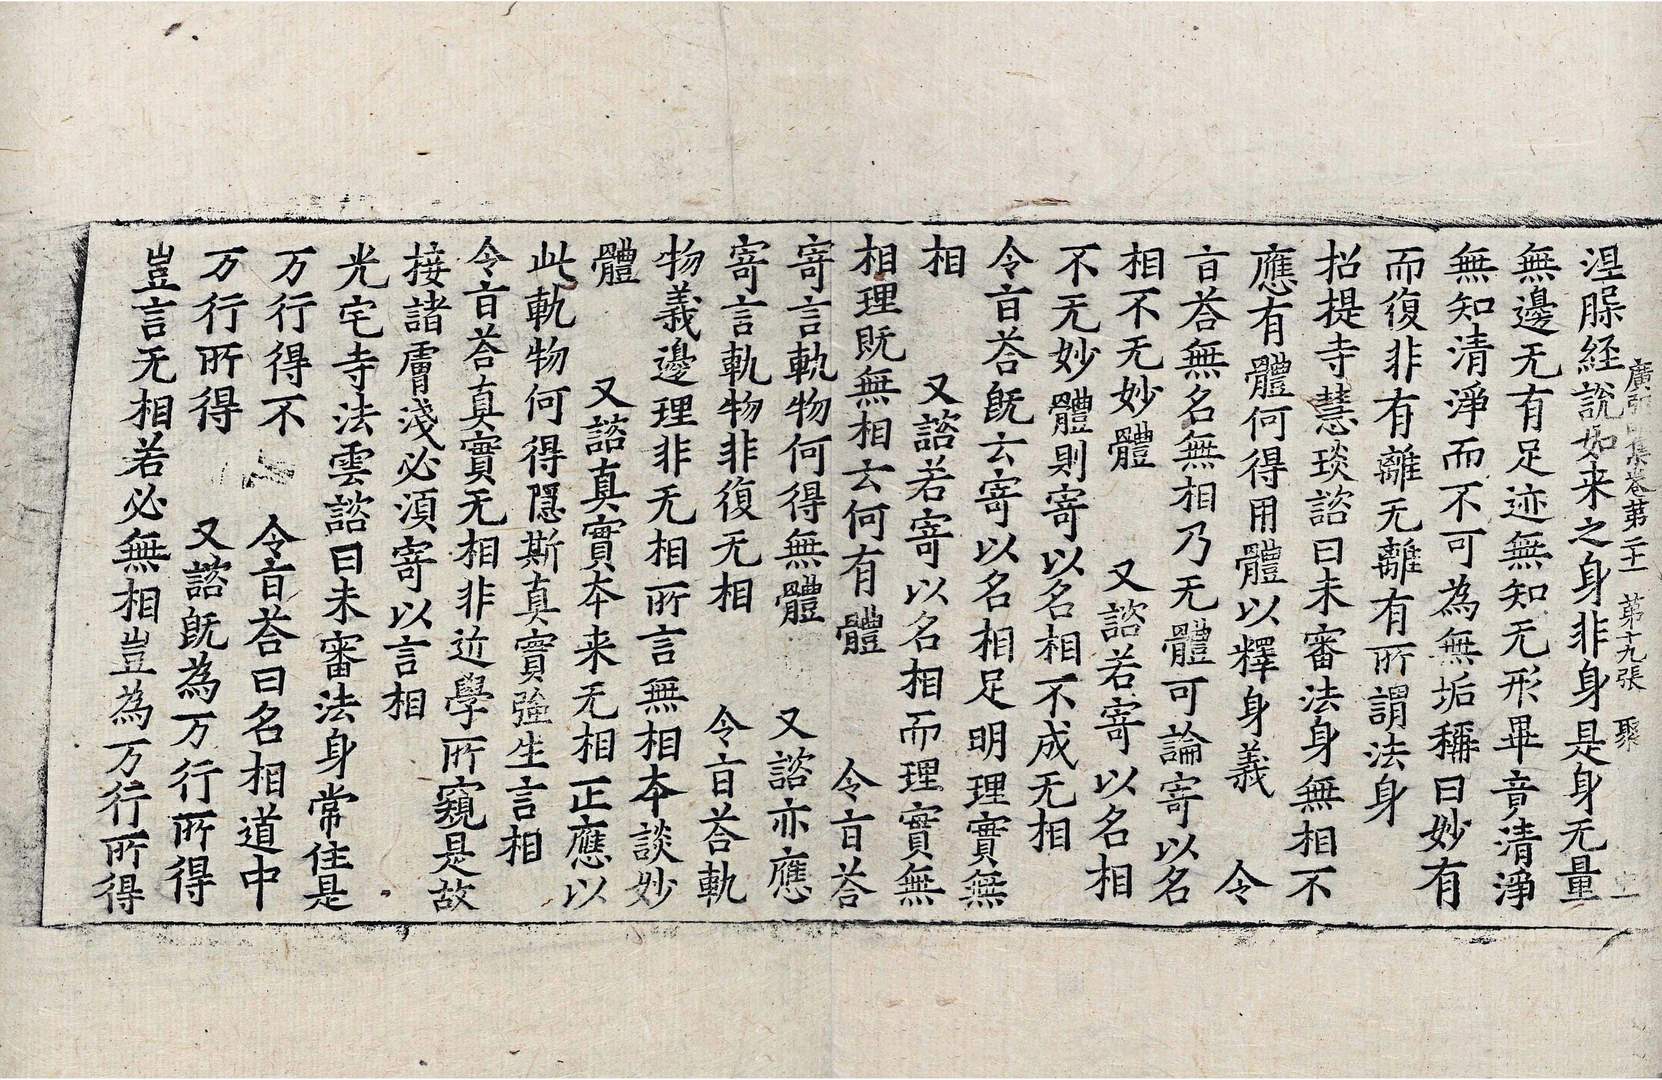 廣弘明集卷第二十一　第十九張　聚
涅槃経說如来之身非身是身无量
無邊无有足迹無知无形畢竟清淨
無知清淨而不可為無垢稱曰妙有
而復非有離无離有所謂法身
招提寺慧琰諮曰未審法身無相不
應有體何得用體以釋身義　令
旨荅無名無相乃无體可論寄以名
相不无妙體　又諮若寄以名相
不无妙體則寄以名相不成无相
令旨荅旣云寄以名相足明理實無
相　又諮若寄以名相而理實無
相理旣無相云何有體　令旨荅
寄言軌物何得無體　又諮亦應
寄言軌物非復无相　令旨荅軌
物義邊理非无相所言無相本談妙
體　又諮真實本来无相正應以
此軌物何得隱斯真實強生言相
令旨荅真實无相非近學所窺是故
接諸膚淺必須寄以言相
光宅寺法雲諮曰未審法身常住是
万行得不　令旨荅曰名相道中
万行所得　又諮旣為万行所得
豈言无相若必無相豈為万行所得